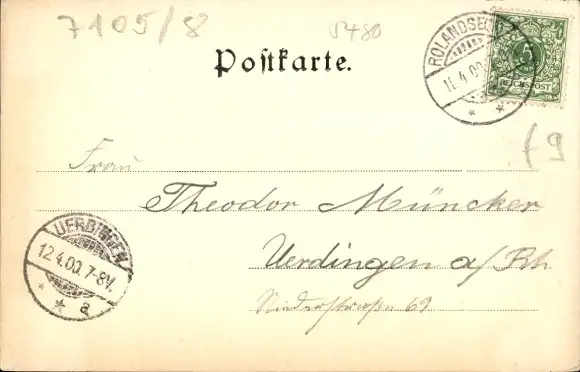 7105/8
5480
Postkarte.
ROLANDSECK
11.4.00
5
REICHSPOST
f9
Frau
Theodor Müncker
Uerdingen a/Rh.
Niederstrasse 69
UERDINGEN
12.4.00.7-8V.
* * a